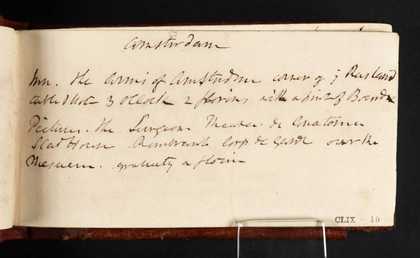 Amsterdam
Inn. the Arms of Amsterdam corner of
table d'hote 3 o'Clock 2 florins with a pint of
Pictures. the Surgeons Theatre de Anatomie
Stadt House Rembrandt Corp de Garde over the
Museum. gratuity a florin
CLIX - 10